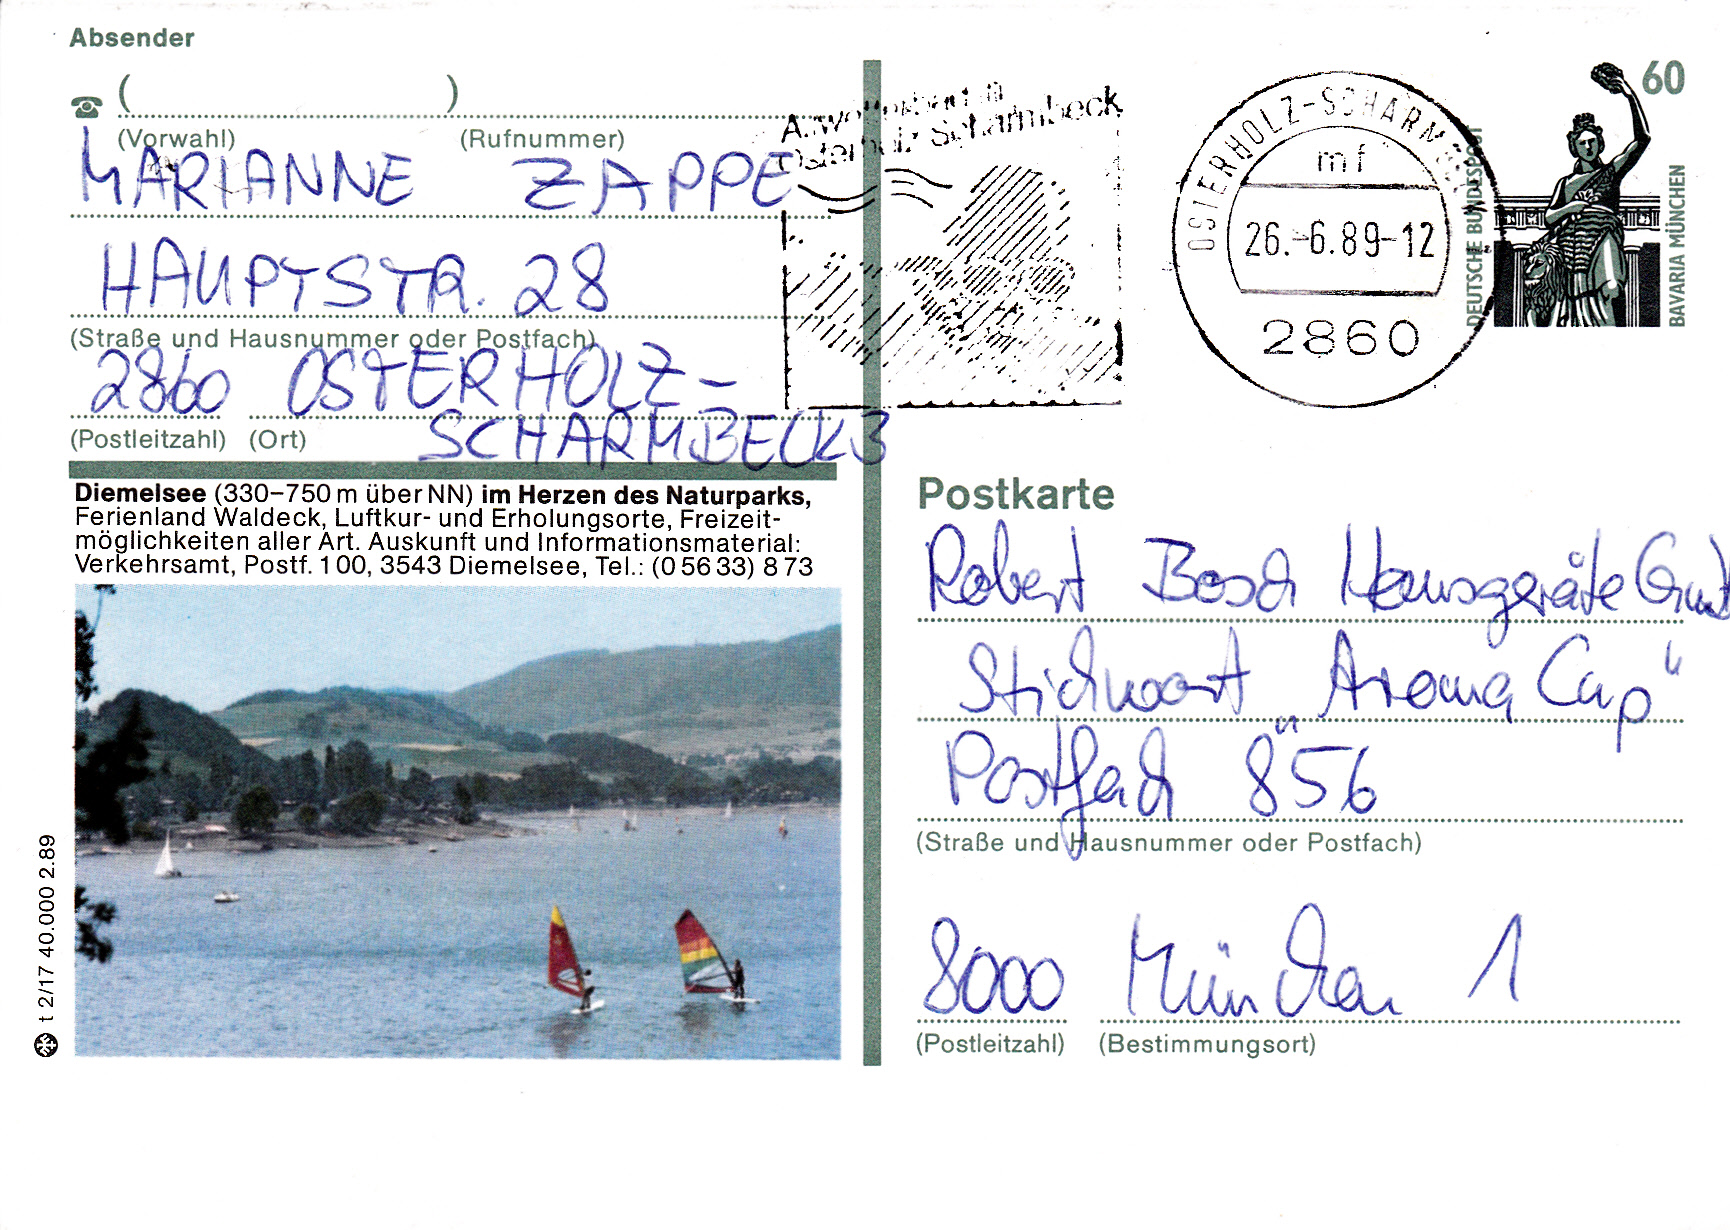 Absender
( )
(Vorwahl) (Rufnummer)
MARIANNE ZAPPE
HAUPTSTR. 28
(Straße und Hausnummer oder Postfach)
2860 OSTERHOLZ-
SCHARMBECK 3
(Postleitzahl) (Ort)
Diemelsee (330–750 m über NN) im Herzen des Naturparks,
Ferienland Waldeck, Luftkur- und Erholungsorte, Freizeit-
möglichkeiten aller Art. Auskunft und Informationsmaterial:
Verkehrsamt, Postf. 100, 3543 Diemelsee, Tel.: (0 56 33) 8 73
t 2/17 40.000 2.89
Scharmbeck
OSTERHOLZ-SCHARM
mf
26.-6.89-12
2860
60
DEUTSCHE BUNDESPOST
BAVARIA MÜNCHEN
Postkarte
Robert Bosch Hausgeräte
Stichwort "Aroma Cup"
Postfach 856
(Straße und Hausnummer oder Postfach)
8000 München 1
(Postleitzahl) (Bestimmungsort)